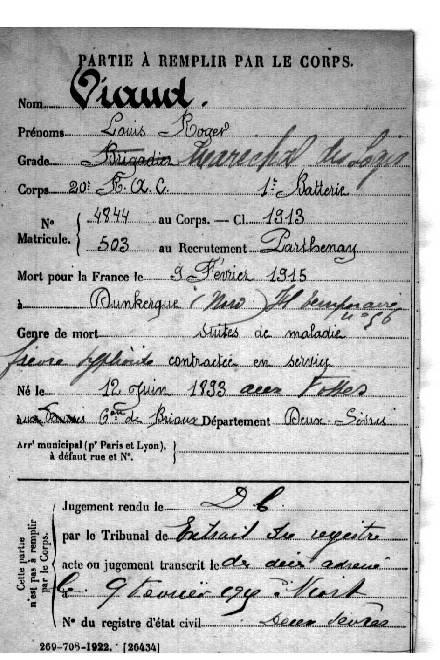 PARTIE À REMPLIR PAR LE CORPS.
Nom Viaud.
Prénoms Louis Roger
Grade Brigadier Maréchal des Logis
Corps 20e R.A.C. 1re Batterie
N° Matricule. { 4844 au Corps. — Cl. 1913
503 au Recrutement Parthenay
Mort pour la France le 9 Février 1915
à Dunkerque (Nord) H temporaire
Genre de mort suites de maladie
fièvre typhoïde contractée en service
Né le 12 Juin 1893 aux Fosses
aux Fosses Con de Brioux Département Deux-Sèvres
Arrt municipal (pr Paris et Lyon), à défaut rue et N°. }
Cette partie n'est pas à remplir par le Corps.
Jugement rendu le D C
par le Tribunal de Extrait du registre
acte ou jugement transcrit le de décès adressé
le 9 Niort
N° du registre d'état civil Deux Sèvres
269-708-1922. [26434]